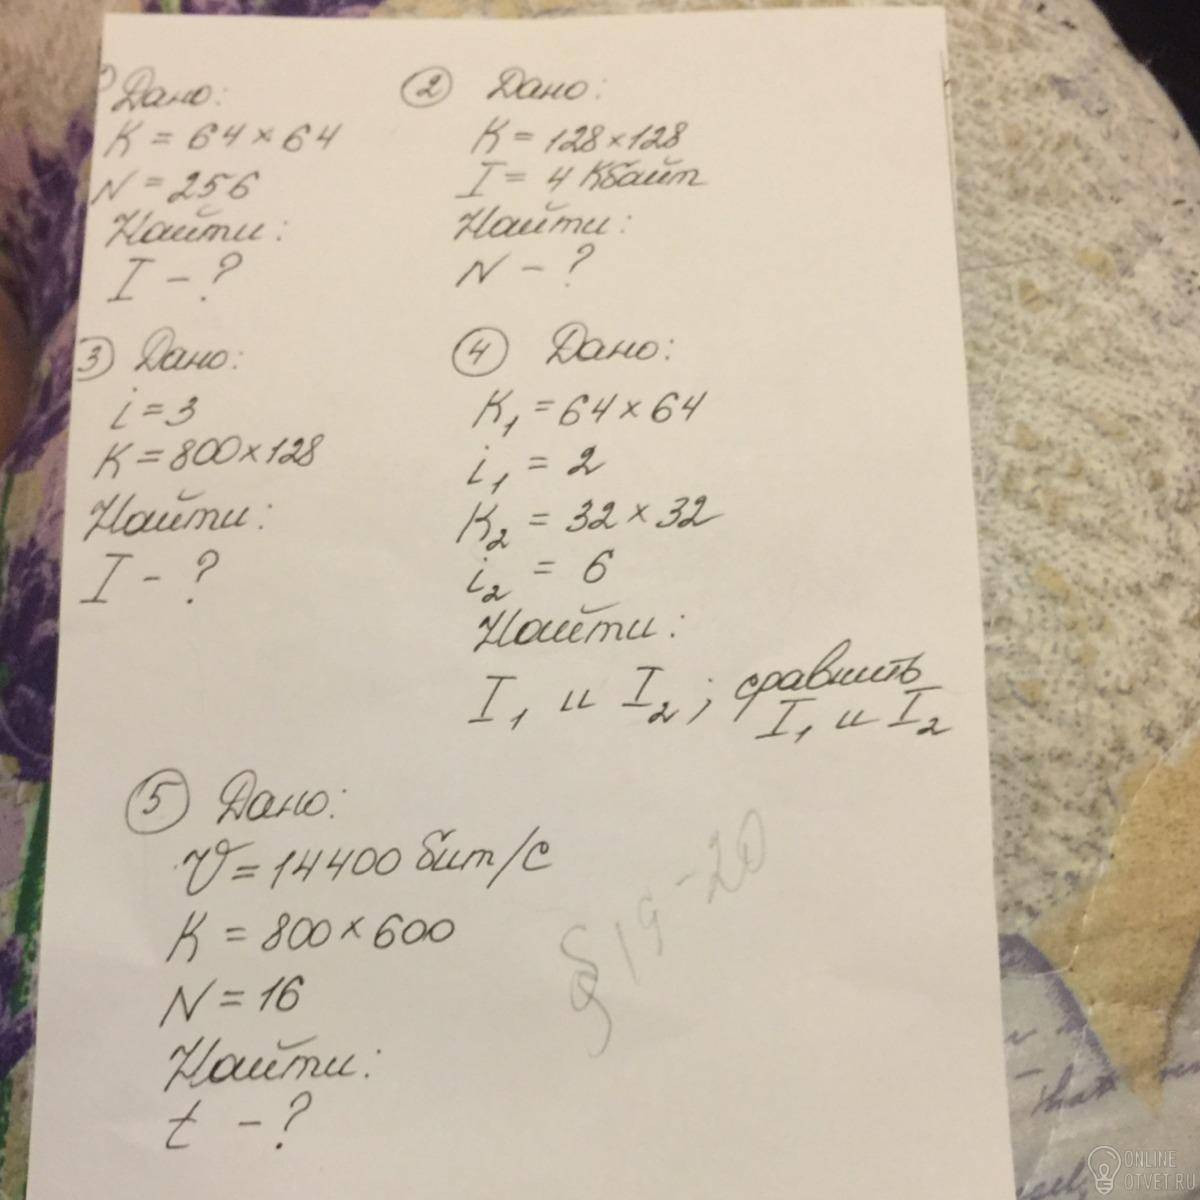 Дано:
K = 64 × 64
N = 256
Найти:
I - ?
② Дано:
K = 128 × 128
I = 4 Кбайт
Найти:
N - ?
③ Дано:
i = 3
K = 800 × 128
Найти:
I - ?
④ Дано:
K₁ = 64 × 64
i₁ = 2
K₂ = 32 × 32
i₂ = 6
Найти:
I₁ и I₂; сравнить
I₁ и I₂
⑤ Дано:
V = 14400 бит/с
K = 800 × 600
N = 16
Найти:
t - ?
§ 19-20
ONLINE
OTVET.RU